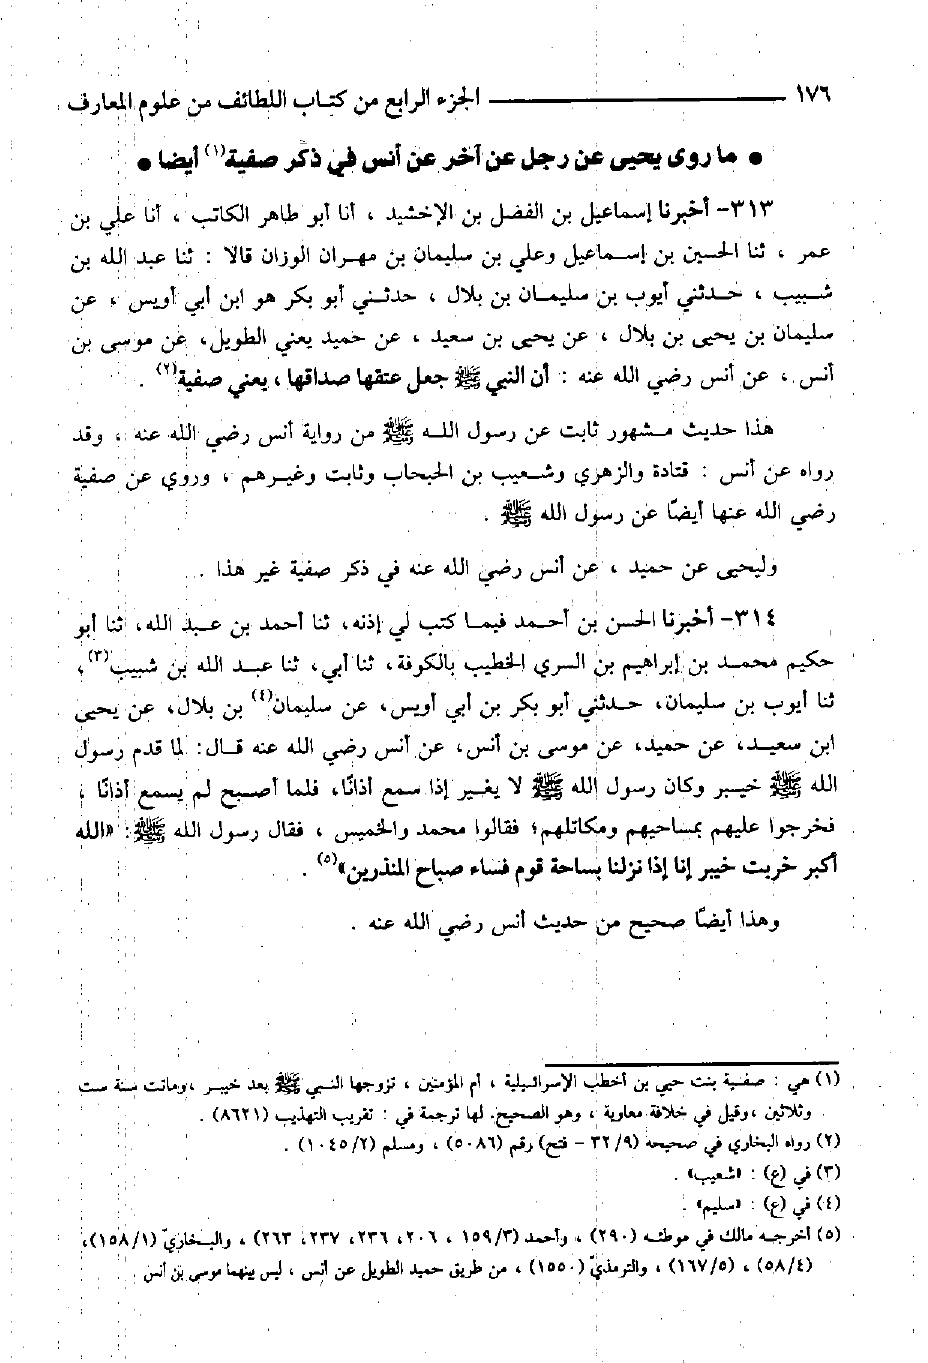 ١٧٦ الجزء الرابع من كتاب اللطائف من علوم المعارف
● ما روى يحيى عن رجل عن آخر عن أنس في ذكر صفية(١) أيضا ●
٣١٣- أخبرنا إسماعيل بن الفضل بن الإخشيد ، أنا أبو طاهر الكاتب ، أنا علي بن
عمر ، ثنا الحسين بن إسماعيل وعلي بن سليمان بن مهران الوزان قالا : ثنا عبد الله بن
شبيب ، حدثني أيوب بن سليمان بن بلال ، حدثني أبو بكر هو ابن أبي أويس ، عن
سليمان بن يحيى بن بلال ، عن يحيى بن سعيد ، عن حميد يعني الطويل، عن موسى بن
أنس ، عن أنس رضي الله عنه : أن النبي ﷺ جعل عتقها صداقها ، يعني صفية(٢) .
هذا حديث مشهور ثابت عن رسول الله ﷺ من رواية أنس رضي الله عنه ، وقد
رواه عن أنس : قتادة والزهري وشعيب بن الحبحاب وثابت وغيرهم ، وروي عن صفية
رضي الله عنها أيضًا عن رسول الله ﷺ .
وليحيى عن حميد ، عن أنس رضي الله عنه في ذكر صفية غير هذا .
٣١٤- أخبرنا الحسن بن أحمد فيما كتب لي إذنه، ثنا أحمد بن عبد الله، ثنا أبو
حكيم محمد بن إبراهيم بن السري الخطيب بالكوفة، ثنا أبي، ثنا عبد الله بن شبيب(٣)،
ثنا أيوب بن سليمان، حدثني أبو بكر بن أبي أويس، عن سليمان(٤) بن بلال، عن يحيى
ابن سعيد، عن حميد، عن موسى بن أنس، عن أنس رضي الله عنه قال: لما قدم رسول
الله ﷺ خيبر وكان رسول الله ﷺ لا يغير إذا سمع أذانًا، فلما أصبح لم يسمع أذانًا ،
فخرجوا عليهم بمساحيهم ومكاتلهم؛ فقالوا محمد والخميس ، فقال رسول الله ﷺ: «الله
أكبر خربت خيبر إنا إذا نزلنا بساحة قوم فساء صباح المنذرين»(٥) .
وهذا أيضًا صحيح من حديث أنس رضي الله عنه .
(١) هي : صفية بنت حيي بن أخطب الإسرائيلية ، أم المؤمنين ، تزوجها النبي ﷺ بعد خيبر ،وماتت سنة ست
وثلاثين ،وقيل في خلافة معاوية ، وهو الصحيح. لها ترجمة في : تقريب التهذيب (٨٦٢١) .
(٢) رواه البخاري في صحيحه (٣٢/٩ - فتح) رقم (٥٠٨٦) ، ومسلم (١٠٤٥/٢) .
(٣) في (ع) : «شعيب» .
(٤) في (ع) : «سليم» .
(٥) أخرجه مالك في موطئه (٢٩٠) ، وأحمد (١٥٩/٣ ، ٢٠٦، ٢٣٦، ٢٣٧، ٢٦٣) ، والبخاريّ (١٥٨/١)،
(٥٨/٤) ، (١٦٧/٥) ، والترمذيّ (١٥٥٠) ، من طريق حميد الطويل عن أنس ، ليس بينهما موسى بن أنس .